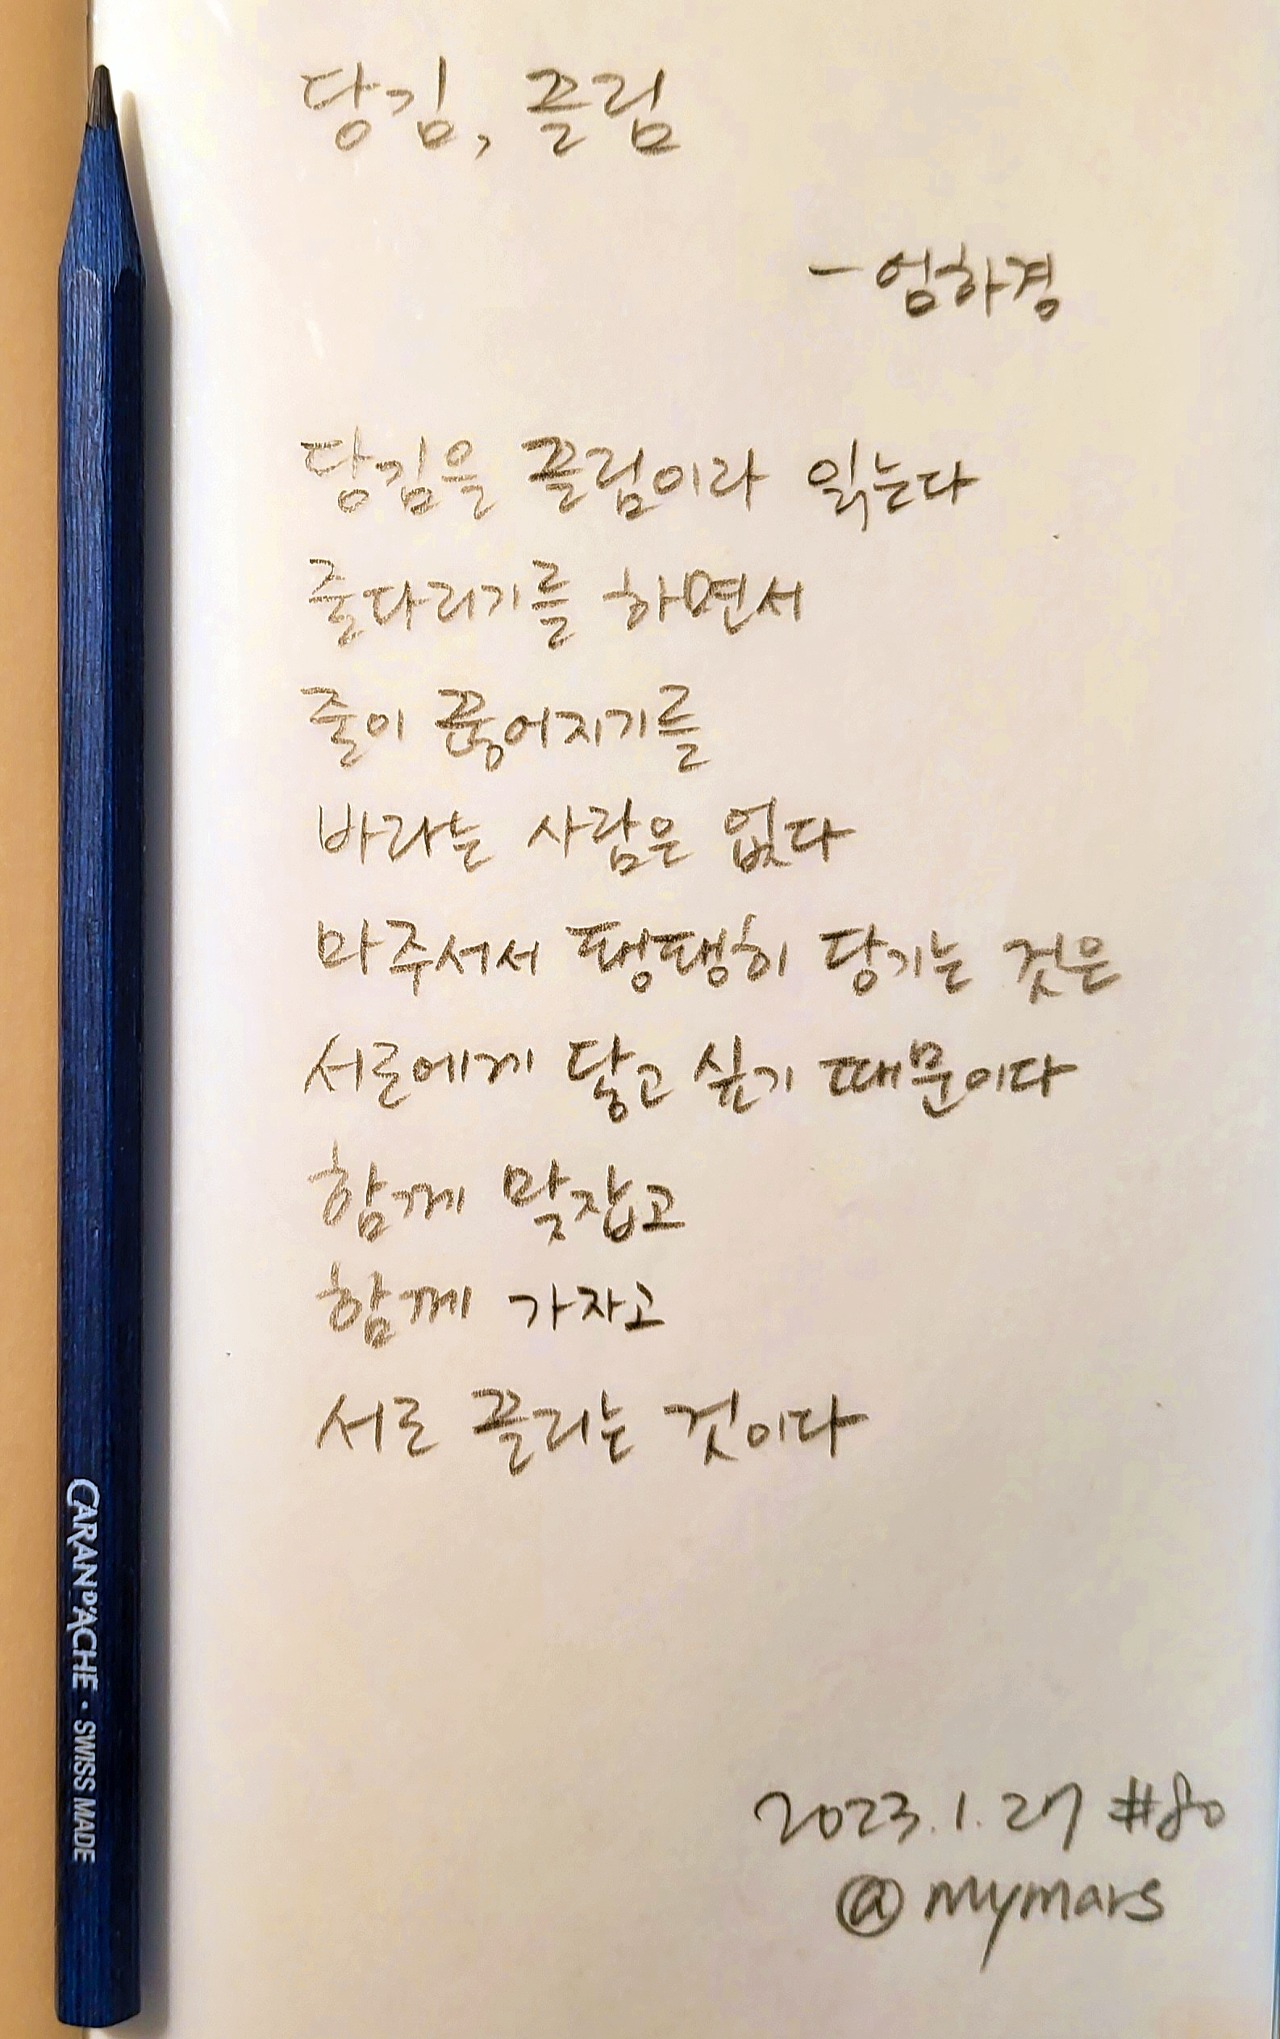 당김, 끌림
- 엄하경
당김을 끌림이라 읽는다
줄다리기를 하면서
줄이 끊어지기를
바라는 사람은 없다
마주서서 팽팽히 당기는 것은
서로에게 닿고 싶기 때문이다
함께 맞잡고
함께 가자고
서로 끌리는 것이다
2023.1.27 #80
@mymars
CARAN D'ACHE · SWISS MADE